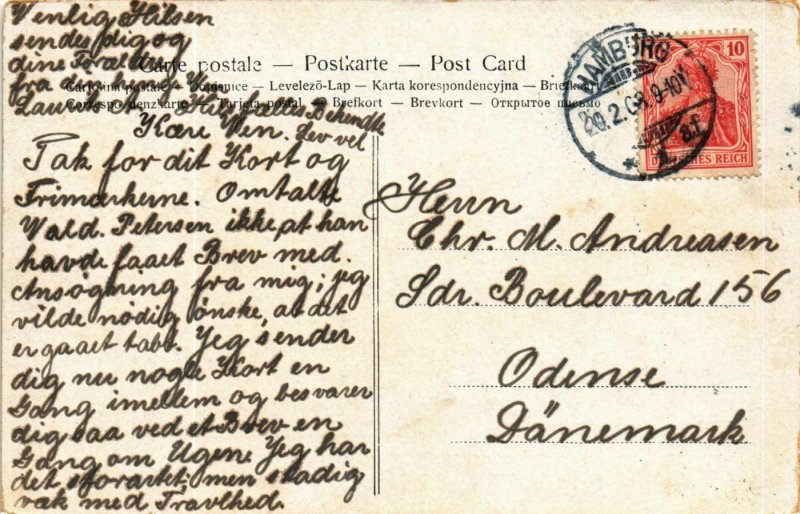 Venlig Hilsen
sendes dig og
dine Forældre
fra din hengivne
Carte postale — Postkarte — Post Card
Cartolina postale — Dopisnice — Levelező-Lap — Karta korespondencyjna — Briefkaart
Correspondenzkarte — Tarjeta postal — Brefkort — Brevkort — Открытое письмо
Bekendte
Lev vel
Kære Ven.
Tak for dit Kort og
Frimærkerne. Omtalte
Wald. Petersen ikke, at han
havde faaet Brev med.
Ansøgning fra mig; jeg
vilde nødig ønske, at det
er gaaet tabt. Jeg sender
dig nu nogle Kort en
Gang imellem og besvarer
dig saa ved et Brev en
Gang om Ugen. Jeg har
det storartet, men stadig
væk med Travlhed.
HAMBURG
20.2.08. 9-10V.
10
DEUTSCHES REICH
Herrn
Chr. M. Andreasen
Sdr. Boulevard 156
Odense
Dänemark